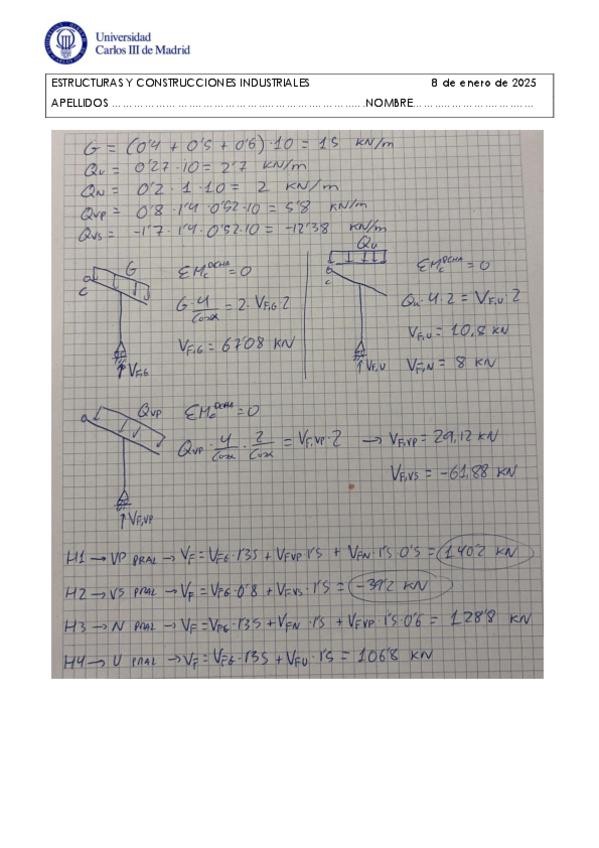 Universidad
Carlos III de Madrid
ESTRUCTURAS Y CONSTRUCCIONES INDUSTRIALES 8 de enero de 2025
APELLIDOS ……………………………………………………………..NOMBRE……………………………
G = (0'4 + 0'5 + 0'6)·10 = 15 KN/m
Qu = 0'27·10 = 2'7 KN/m
QN = 0'2·1·10 = 2 KN/m
QVP = 0'8·1'4·0'52·10 = 5'8 KN/m
QVS = -1'7·1'4·0'52·10 = -12'38 KN/m
G
C
ΣMc^DCHA = 0
G·4/Cosα = 2·VF,G·2
VF,G = 67'08 KN
VF,G
Qu
C
ΣMc^DCHA = 0
Qu·4·2 = VF,U·2
VF,U = 10,8 KN
VF,N = 8 KN
VF,U
QVP
ΣMc^DCHA = 0
QVP·4/Cosα·2/Cosα = VF,VP·2 → VF,VP = 29,12 KN
VF,VS = -61,88 KN
VF,VP
H1 → VP PRAL → VF = VFG·1'35 + VFVP·1'5 + VFN·1'5·0'5 = 140'2 KN
H2 → VS PRAL → VF = VFG·0'8 + VFVS·1'5 = -39'2 KN
H3 → N PRAL → VF = VFG·1'35 + VFN·1'5 + VFVP·1'5·0'6 = 128'8 KN
H4 → U PRAL → VF = VFG·1'35 + VFU·1'5 = 106'8 KN